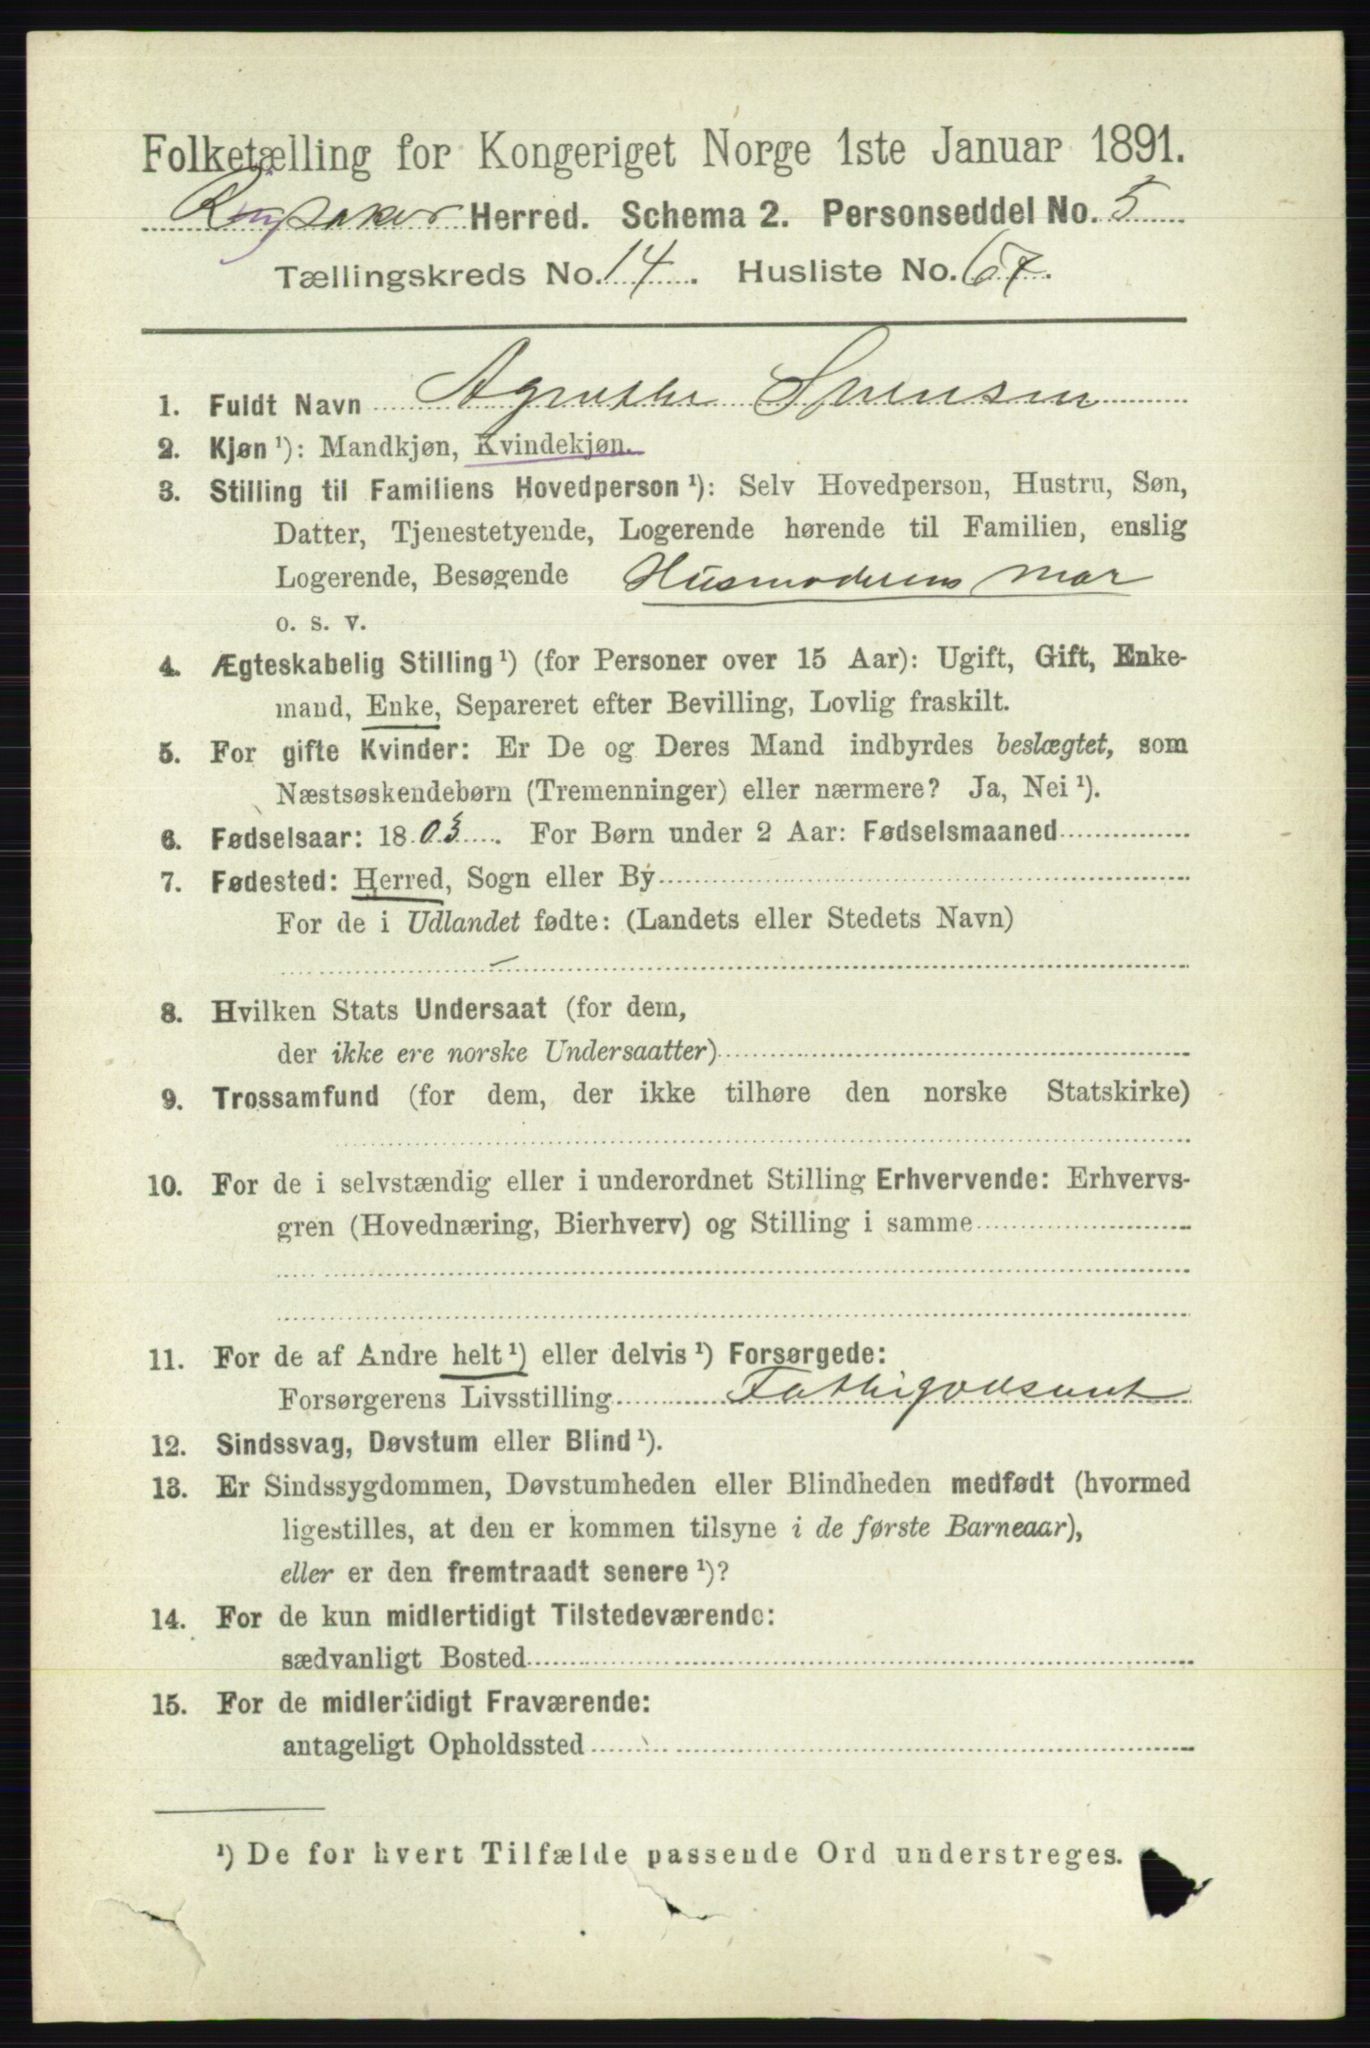 Folketælling for Kongeriget Norge 1ste Januar 1891.
Ringsaker Herred. Schema 2. Personseddel No. 5
Tællingskreds No. 14. Husliste No. 67.
1. Fuldt Navn Agnethe Svensen
2. Kjøn ¹): Mandkjøn, Kvindekjøn.
3. Stilling til Familiens Hovedperson ¹): Selv Hovedperson, Hustru, Søn,
Datter, Tjenestetyende, Logerende hørende til Familien, enslig
Logerende, Besøgende Husmoderens mor
o. s. v.
4. Ægteskabelig Stilling ¹) (for Personer over 15 Aar): Ugift, Gift, Enke-
mand, Enke, Separeret efter Bevilling, Lovlig fraskilt.
5. For gifte Kvinder: Er De og Deres Mand indbyrdes beslægtet, som
Næstsøskendebørn (Tremenninger) eller nærmere? Ja, Nei ¹).
6. Fødselsaar: 1803. For Børn under 2 Aar: Fødselsmaaned
7. Fødested: Herred, Sogn eller By
For de i Udlandet fødte: (Landets eller Stedets Navn)
8. Hvilken Stats Undersaat (for dem,
der ikke ere norske Undersaatter)
9. Trossamfund (for dem, der ikke tilhøre den norske Statskirke)
10. For de i selvstændig eller i underordnet Stilling Erhvervende: Erhvervs-
gren (Hovednæring, Bierhverv) og Stilling i samme
11. For de af Andre helt ¹) eller delvis ¹) Forsørgede:
Forsørgerens Livsstilling
12. Sindssvag, Døvstum eller Blind ¹).
13. Er Sindssygdommen, Døvstumheden eller Blindheden medfødt (hvormed
ligestilles, at den er kommen tilsyne i de første Barneaar),
eller er den fremtraadt senere ¹)?
14. For de kun midlertidigt Tilstedeværende:
sædvanligt Bosted
15. For de midlertidigt Fraværende:
antageligt Opholdssted
¹) De for hvert Tilfælde passende Ord understreges.